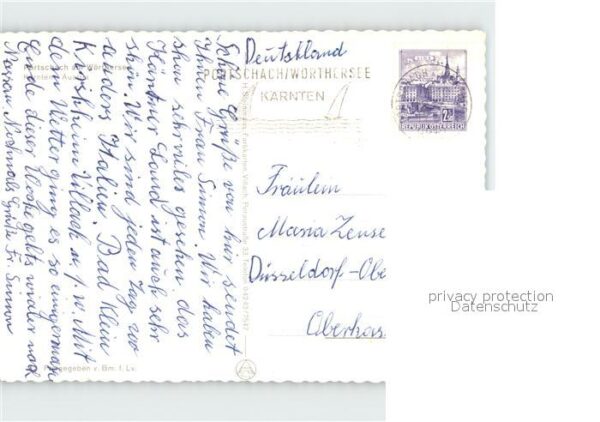 Schöne Grüße von hier sendet
Ihnen Frau Simon. Wir haben
schon sehr vieles gesehen, das
Kärntner Land ist auch sehr
schön. Wir sind jeden Tag wo
anders Italien, Bad Klein
Kirchheim Villach u. s. w. Mit
dem Wetter ging es so einigermaßen
Ende dieser Woche gehts wieder nach
Nochmals Grüße Fr. Simon
Pörtschach am Wörthersee
Austria
Deutschland
PÖRTSCHACH/WÖRTHERSEE
KÄRNTEN
REPUBLIK ÖSTERREICH
Fräulein
Maria Zense
Düsseldorf-Obe
Oberhas
privacy protection
Datenschutz
gegeben v. Bm. f. Lv.